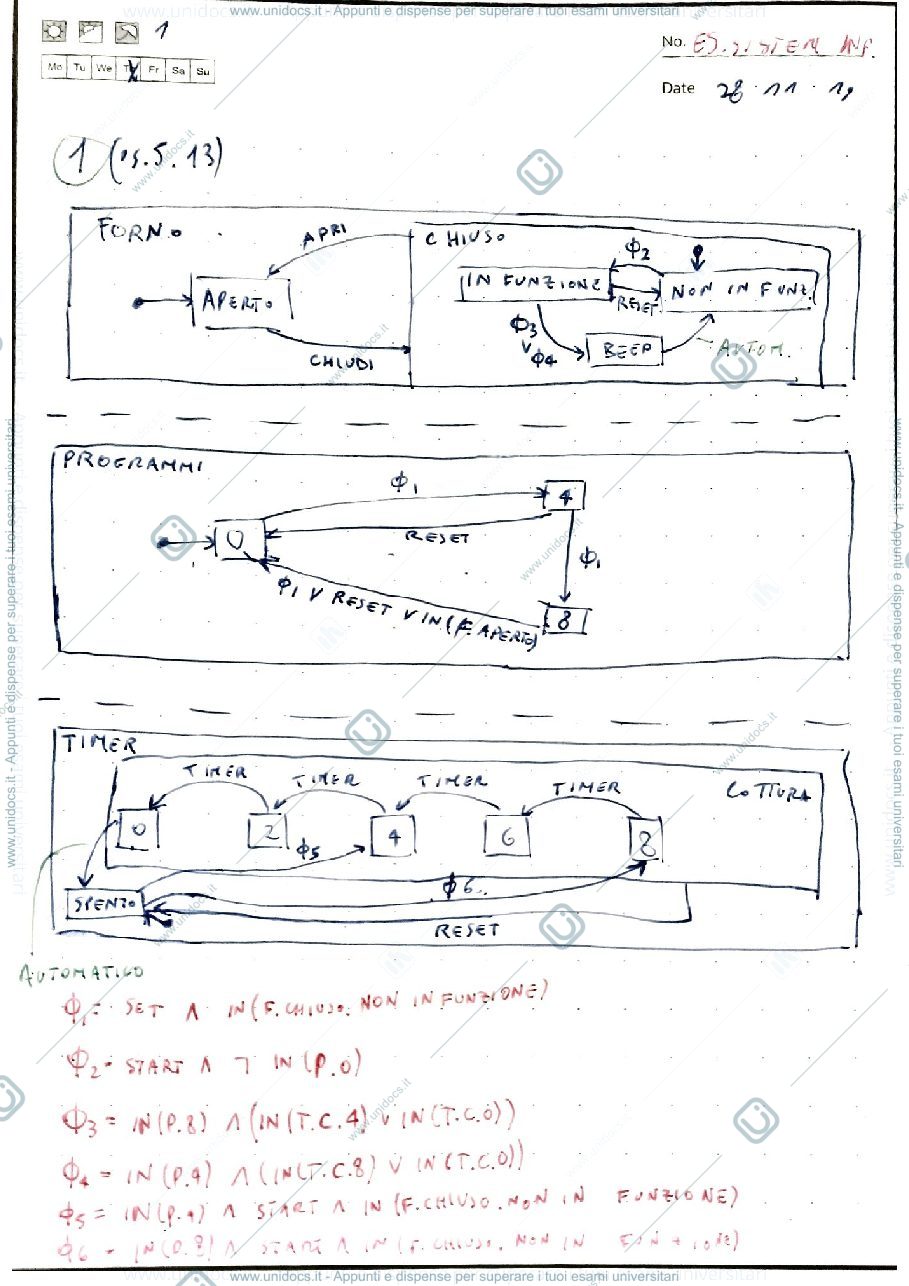 www.unidocs.it - Appunti e dispense per superare i tuoi esami universitari
1
No. ES. SISTEMI INF.
Mo Tu We Fr Sa Su
Date 28 · 11 · 19
1 (es. 5. 13)
FORNO
APRI
CHIUSO
Φ2
IN FUNZIONE
NON IN FUNZ.
APERTO
RESET
Φ3
V
Φ4
BEEP
AUTOM.
CHIUDI
PROGRAMMI
Φ1
4
0
RESET
Φ1
Φ1 V RESET V IN (F. APERTO)
8
TIMER
TIMER TIMER TIMER TIMER
COTTURA
0 2 4 6 8
Φ5
Φ6
SPENTO
RESET
AUTOMATICO
Φ1 = SET ∧ IN (F. CHIUSO. NON IN FUNZIONE)
Φ2 = START ∧ ¬ IN (P.0)
Φ3 = IN (P.8) ∧ (IN (T.C.4) ∨ IN (T.C.0))
Φ4 = IN (P.4) ∧ (IN (T.C.8) ∨ IN (T.C.0))
Φ5 = IN (P.4) ∧ START ∧ IN (F. CHIUSO. NON IN FUNZIONE)
Φ6 = IN (P.8) ∧ START ∧ IN (F. CHIUSO. NON IN FUNZIONE)
www.unidocs.it - Appunti e dispense per superare i tuoi esami universitari